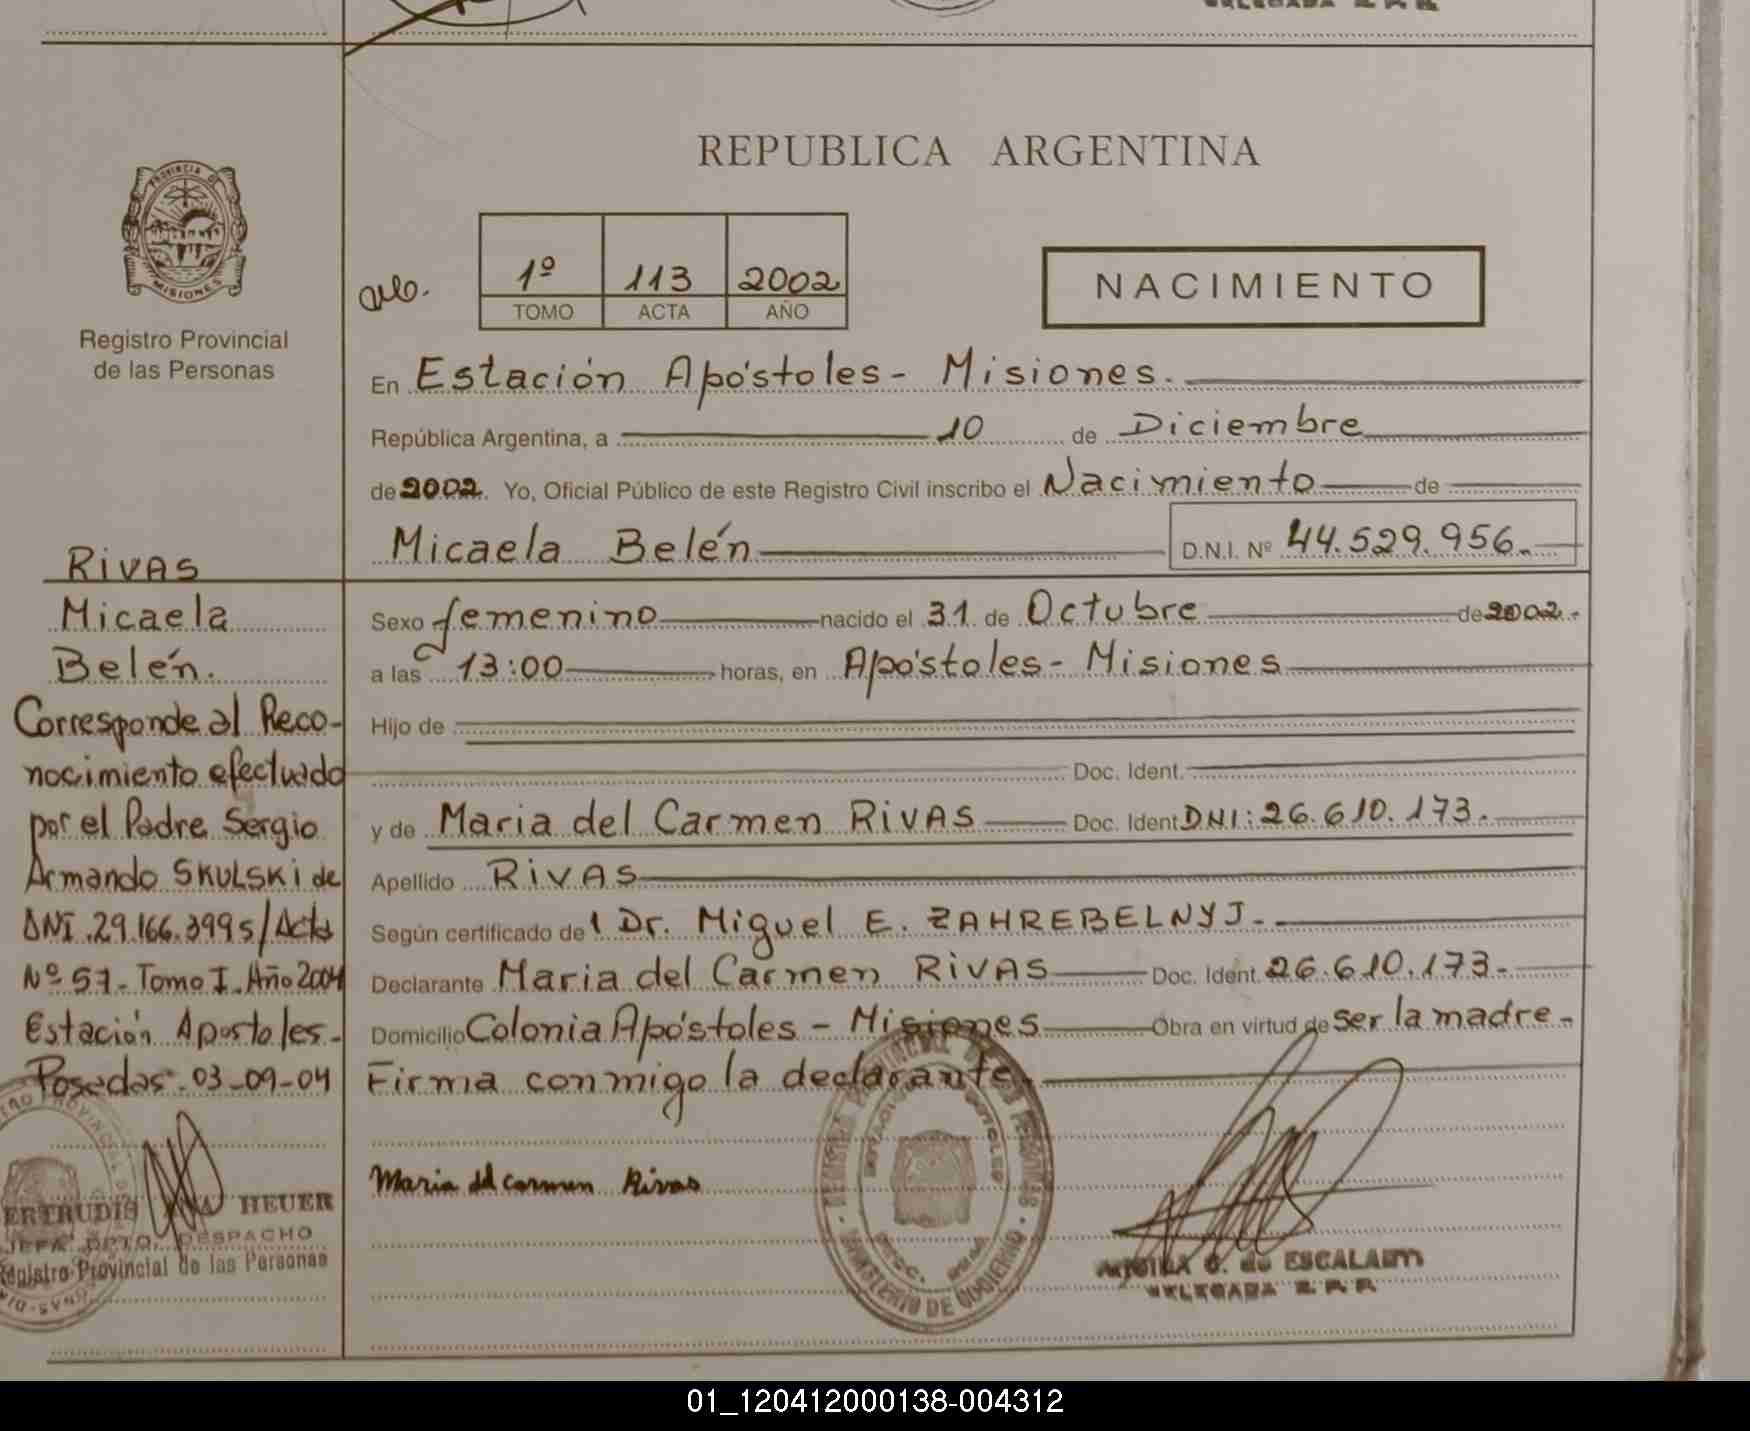 REPUBLICA ARGENTINA
PROVINCIA DE
MISIONES
Registro Provincial
de las Personas
1º 113 2002
TOMO ACTA AÑO
NACIMIENTO
En Estación Apóstoles - Misiones.
República Argentina, a 10 de Diciembre
de 2002. Yo, Oficial Público de este Registro Civil inscribo el Nacimiento de
Micaela Belén D.N.I. Nº 44.529.956.
Sexo femenino nacido el 31 de Octubre de 2002.-
a las 13:00 horas, en Apóstoles - Misiones
Hijo de
Doc. Ident.
y de Maria del Carmen RIVAS Doc. Ident DNI: 26.610.173.
Apellido RIVAS
Según certificado de 1 Dr. Miguel E. ZAHREBELNYJ.-
Declarante Maria del Carmen RIVAS Doc. Ident. 26.610.173.-
Domicilio Colonia Apóstoles - Misiones Obra en virtud de ser la madre-
Firma conmigo la declarante.
Maria del Carmen Rivas
MINISTERIO DE GOBIERNO
de ESCALA
DELEGADA R.P.P.
RIVAS
Micaela
Belén.
Corresponde al Reco-
nocimiento efectuado
por el Padre Sergio
Armando SKULSKI de
DNI.29.166.399 s/Acta
Nº 57- Tomo I. Año 2004
Estación Apostoles.-
Posadas.03-09-04
ERTRUDIS HEUER
JEFA DPTO. DESPACHO
Registro Provincial de las Personas
01_120412000138-004312